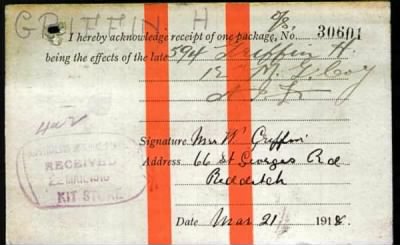 GRIFFIN. H
I hereby acknowledge receipt of one package, No. 30601
being the effects of the late 594 Griffin H.
Signature Mrs W Griffin
Address 66 St Georges Rd
Redditch
RECEIVED
22 MAR. 1918
KIT STORE
Date Mar 21/ 1918.